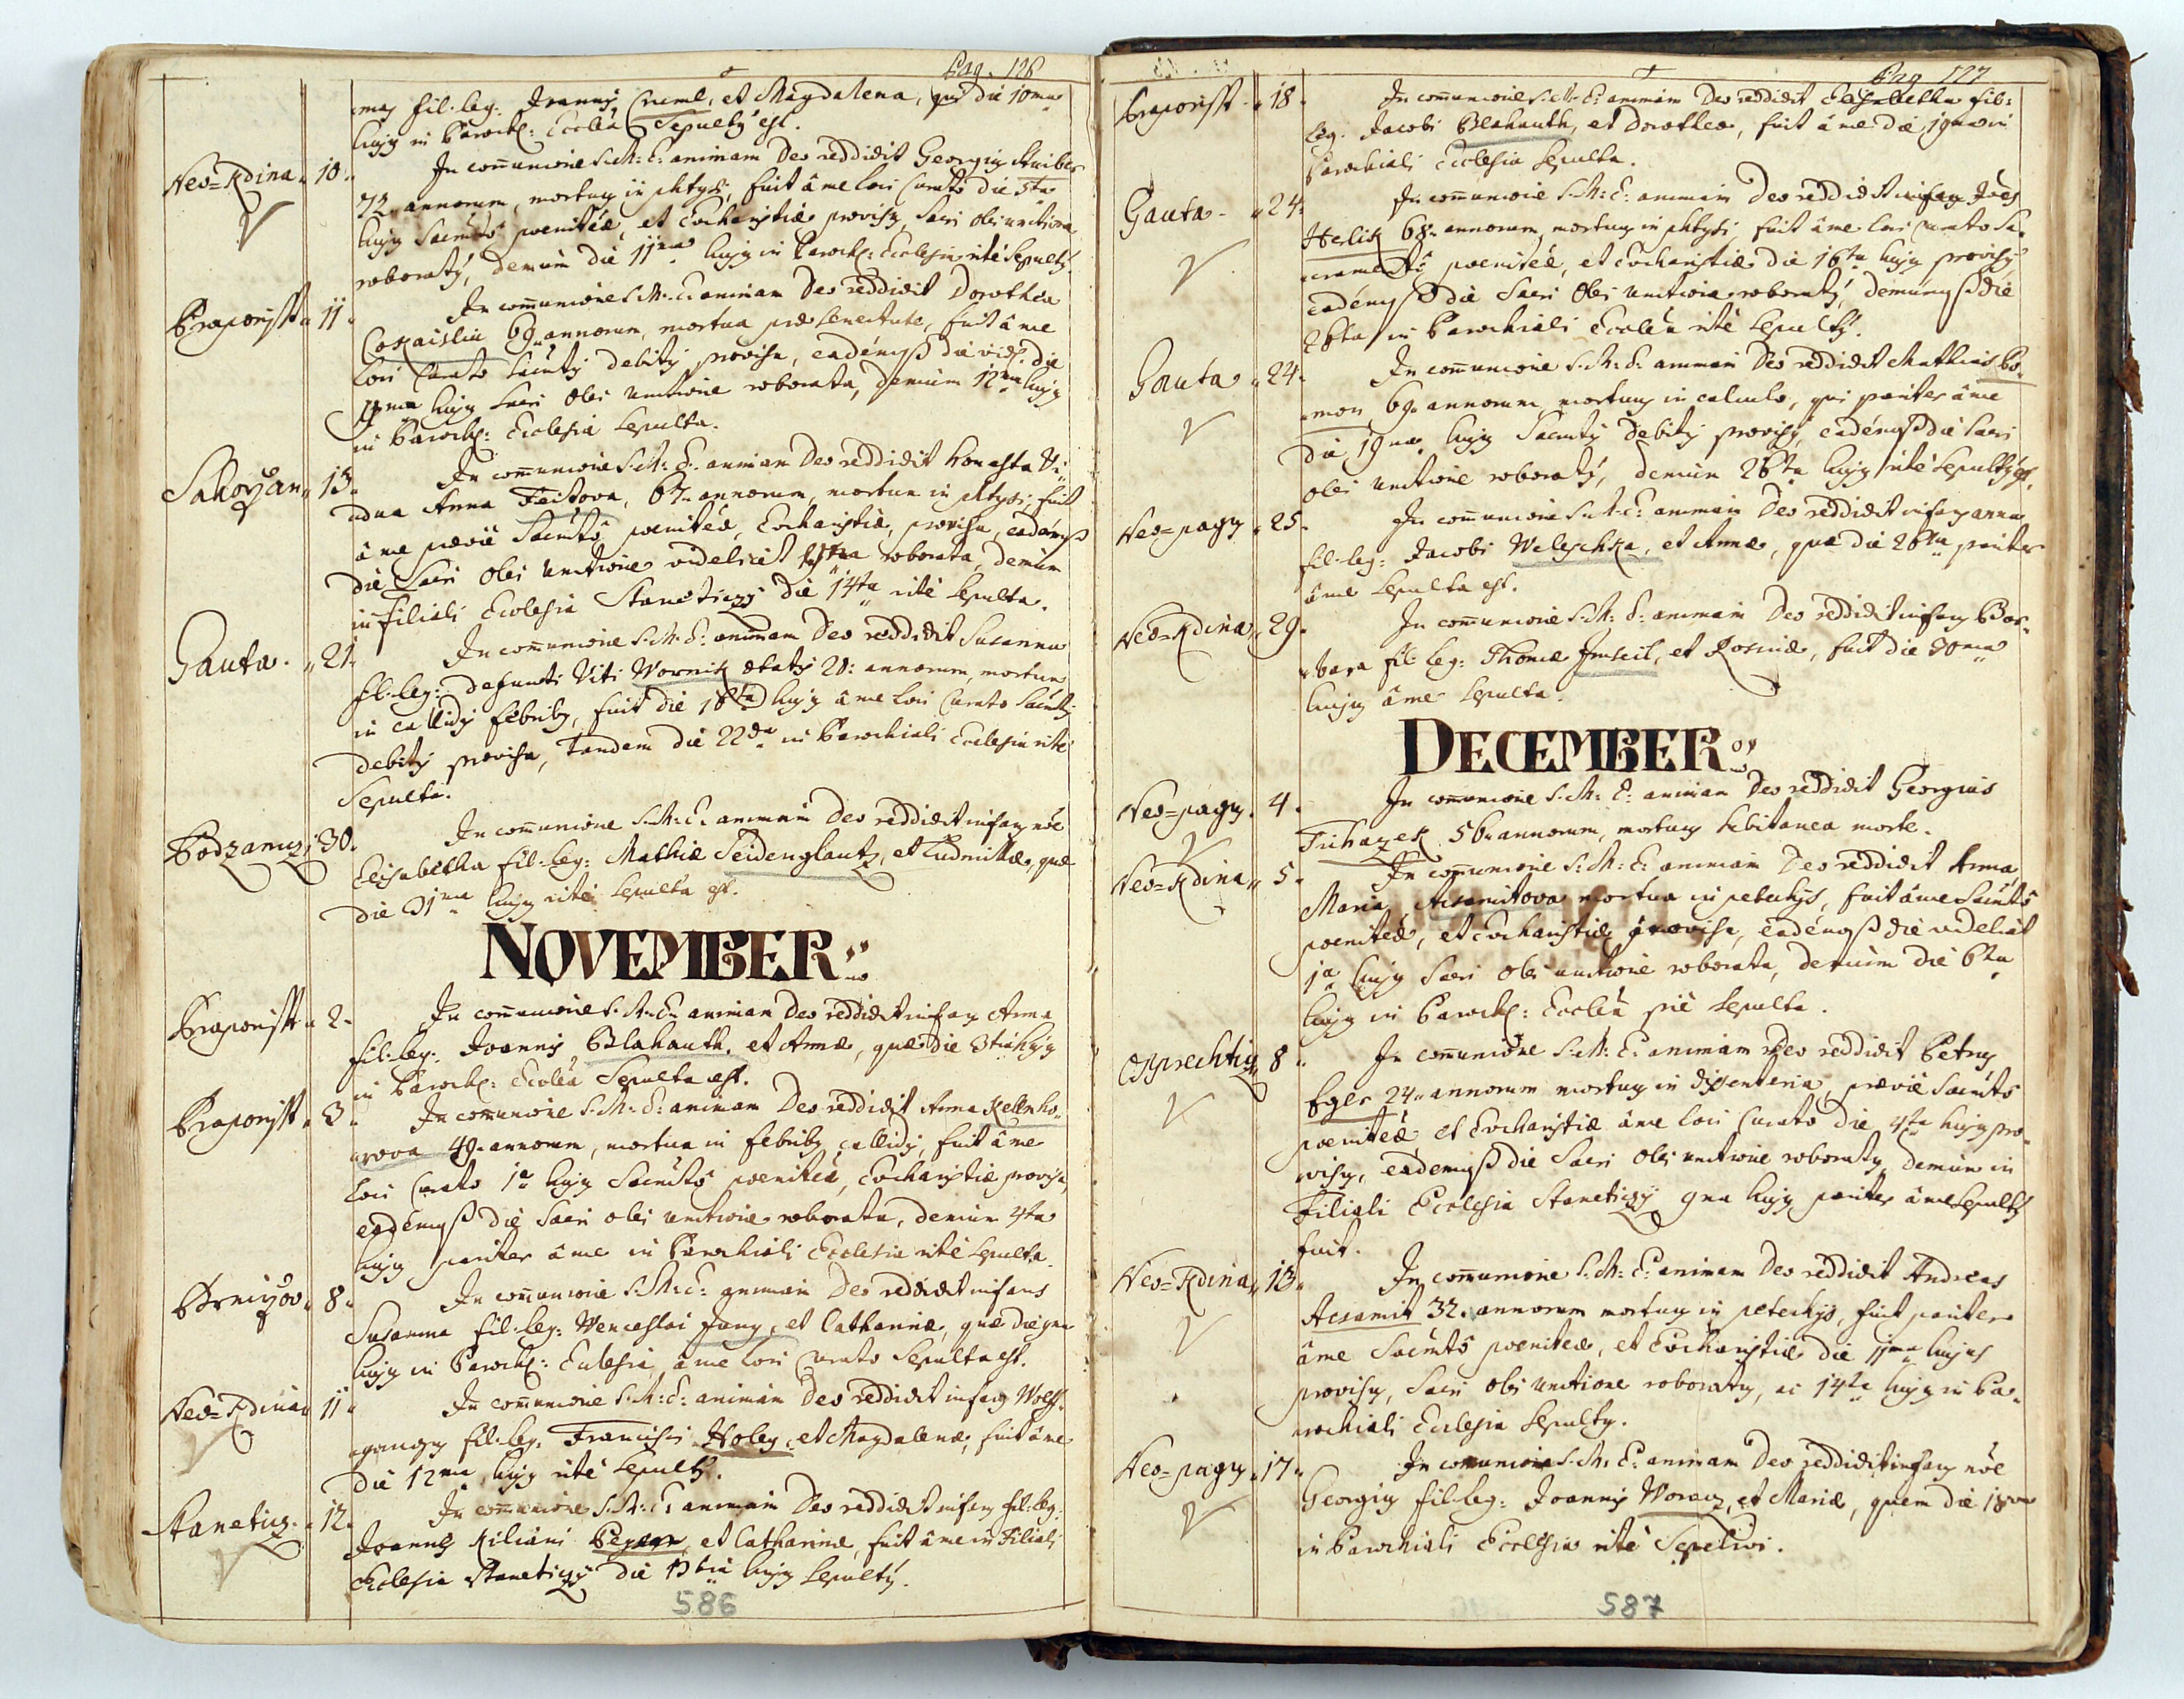 Pag. 126
mas fil. leg. Joannis Cruml, et Magdalena, qui die 10ma
hujus in Paroch: Ecclia Sepultus est.
Neo=Kdina 10. In communione S. M: E: animam Deo reddidit Georgius Stuiber
72 annorum, mortuus in phtysi fuit â me loci Curato die 5ta
hujus Sacmto poenitae, et Eucharistiae provisus, Sacri olei unctione
roboratus, demum die 11ma hujus in Paroch: Ecclesia ritè Sepultus.
Praporisst 11. In communione S. M. E. animam Deo reddidit Dorothea
Cokaislin 69 annorum, mortua prae senectute, fuit â me
loci Curato Sacmtis debitis provisa, eademque die vidt. die
hujus Sacri Olei unctione roborata, demum 12ma hujus
in Paroch: Ecclesia Sepulta.
Sakozan 13. In communione S. M: E: animam Deo reddidit honesta Vi-
dua Anna Feistova, 67 annorum, mortua in phtysi, fuit
â me praeviè Sacmto poenitae, Eucharistiae, provisa, eademque
die Sacri Olei Unctione videlicet roborata, demum
in filiali Ecclesia Staneticzy die 14ta ritè Sepulta.
Gauta. 21. In communione S. M. E: animam Deo reddidit Susanna
fil. leg: defuncti Viti Wornik aetatis 20: annorum, mortua
in callidis febribus, fuit die 18va hujus â me loci Curato Sacmtis
debitis provisa, tandem die 22da in Parochiali Ecclesia ritè
Sepulta.
Podzamcz 30. In communione S. M: E. animam Deo reddidit infans nõe
Elisabetha fil. leg: Mathiae Seidenglantz, et Ludmillae, quae
die 31ma hujus ritè Sepulta est.
NOVEMBER
Praporisst 2. In communione S. M. E. animam Deo reddidit infans Anna
fil. leg. Joannis Blahauth, et Annae, quae die 3tia hujus
in Paroch: Ecclia Sepulta est.
Praporisst 3. In communione S. M. E: animam Deo reddidit Anna Kellnho-
rova 49. annorum, mortua in febribus callidis, fuit â me
loci Curato 1a hujus Sacmto poenitae, Eucharistiae provisa,
eademque die Sacri olei unctione roborata, demum 4ta
hujus pariter â me in Parochiali Ecclesia ritè Sepulta.
8. In communione S. M: E: animam Deo reddidit infans
Susanna fil. leg: Wenceslai Jung, et Catharinae, quae die 9na
hujus in Paroch: Ecclesia, â me loci Curato Sepulta est.
Neo=Kdina 11. In communione S. M: E: animam Deo reddidit infans Wolff-
gangus fil. leg. Francisci Holey, et Magdalenae, fuit â me
die 12ma hujus ritè Sepultus.
Staneticz. 12. In communione S. M: E: animam Deo reddidit infans fil. leg.
Joannes Kiliani et Catharinae, fuit â me in Filiali
Ecclesia Staneticzy die 13tia hujus Sepultus.
586
Pag 127
Praporisst 18. In communione S. M. E: animam Deo reddidit Elisabetha fil:
leg. Jacobi Blahauth, et Dorotheae, fuit â me die 19na in
Parochiali Ecclesia Sepulta.
Gauta 24. In communione S. M: E: animam Deo reddidit Joes
Herlik 68. annorum, mortuus in phtysi fuit â me loci Curato Sa-
cramento poenitae, et Eucharistiae die 16ta hujus provisus
eademque die Sacri Olei unctione roboratus, demumque die
26ta in Parochiali Ecclia ritè Sepultus.
Gauta 24. In communione S. M: E: animam Deo reddidit Mathias Bo-
mon 69. annorum mortuus in calculo, qui pariter â me
die 19na hujus Sacmtis debitis provisus, eademque die Sacri
olei unctione roboratus, demum 26ta hujus ritè Sepultus est.
Neo=pagus 25. In communione S. M. E: animam Deo reddidit infans Anna
fil. leg: Jacobi Weleschka, et Annae, quae die 26ta pariter
â me Sepulta est.
Neo=Kdina 29. In communione S. M: E: animam Deo reddidit infans Bar-
bara fil. leg: Thomae Imseil, et Rosinae, fuit die 30ma
hujus â me Sepulta.
DECEMBER
Neo=pagus. 4. In communione S. M: E: animam Deo reddidit Georgius
Trihazek 56 annorum, mortuus subitanea morte.
Neo=Kdina 5. In communione S: M: E: animam Deo reddidit Anna
Maria Acsamitova mortua in petechys, fuit â me Sacmto
poenitae, et Eucharistiae provisa, eademque die videlicet
1a hujus Sacri olei unctione roborata, demum die 6ta
hujus in Paroch: Ecclia piè Sepulta.
Opprechticz 8. In communione S: M: E: animam Deo reddidit Petrus
Eger 24 annorum mortuus in dissenteria, praeviè Sacmto
poenitae et Eucharistiae â me loci Curato die 4ta hujus pro-
visus, eademque die Sacri Olei unctione roboratus demum in
Filiali Ecclesia Staneticzy 9na hujus pariter â me Sepultus
fuit.
Neo=Kdina 13. In communione S. M: E: animam Deo reddidit Andreas
Acsamit 32. annorum mortuus in petechys, fuit pariter
â me Sacmto poenitae, et Eucharistiae die 11ma hujus
provisus, Sacri Olei unctione roboratus, ac 14ta hujus in Pa-
rochiali Ecclesia Sepultus.
Neo=pagus 17. In communione S. M. E: animam Deo reddidit infans nõe
Georgius fil. leg: Joannis Woracz, et Mariae, quem die 18va
in Parochiali Ecclesia ritè Sepelivi.
587